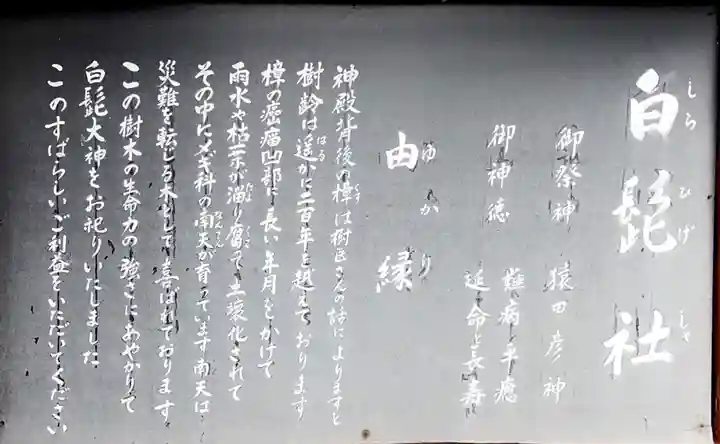 白髭社
しらひげしゃ
御祭神 猿田彦神
御神徳 難病平癒
延命と長寿
由縁
ゆかり
神殿背後の樟は樹医さんの話によりますと
樹齢は遥かに二百年を越えております
樟の瘂瘤凹部に長い年月をかけて
雨水や枯葉が溜り腐って土壌化されて
その中にメギ科の南天が育っています南天は
災難を転じる木として喜ばれております
この樹木の生命力の強さにあやかりて
白髭大神をお祀りいたしました
このすばらしいご利益をいただいてください